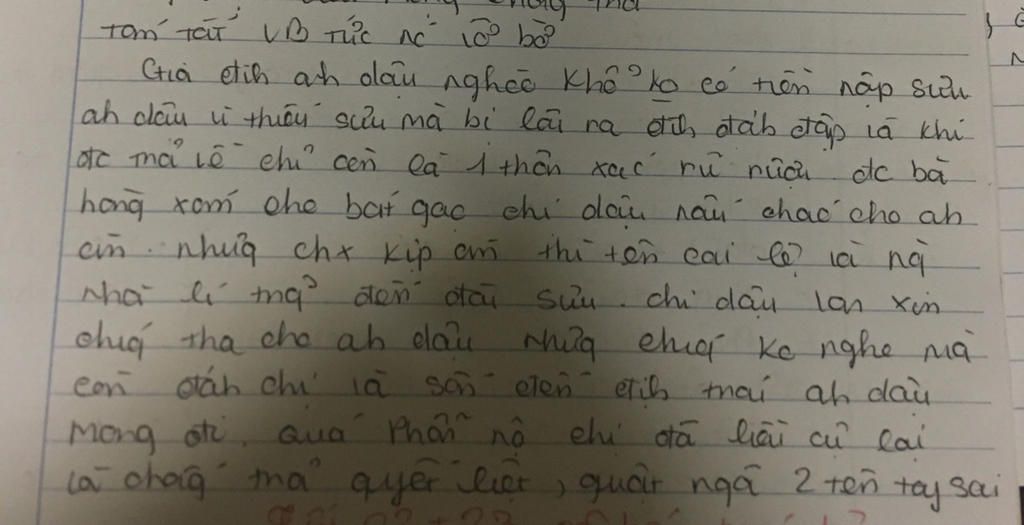 tóm tắt VB tức nc vỡ bờ
Gia đìh ah dậu nghèo khổ ko có tiền nộp sưu
ah dậu vì thiếu sưu mà bị lôi ra đìh đáh đập và khi
đc mả về chỉ còn là 1 thân xác rũ rượi đc bà
hàng xóm cho bát gạo chị dậu nấu cháo cho ah
ăn. nhưg chx kịp ăn thì tên cai lệ và ng
nhà lí trưở đến đòi sưu. chị dậu van xin
chúg tha cho ah dậu nhưg chúg ko nghe mà
còn đáh chị và sấn đến địh trói ah dậu
mang đi. Quá phẫn nộ chị đã liều cự lại
và chốg trả quyết liệt, quật ngã 2 tên tay sai